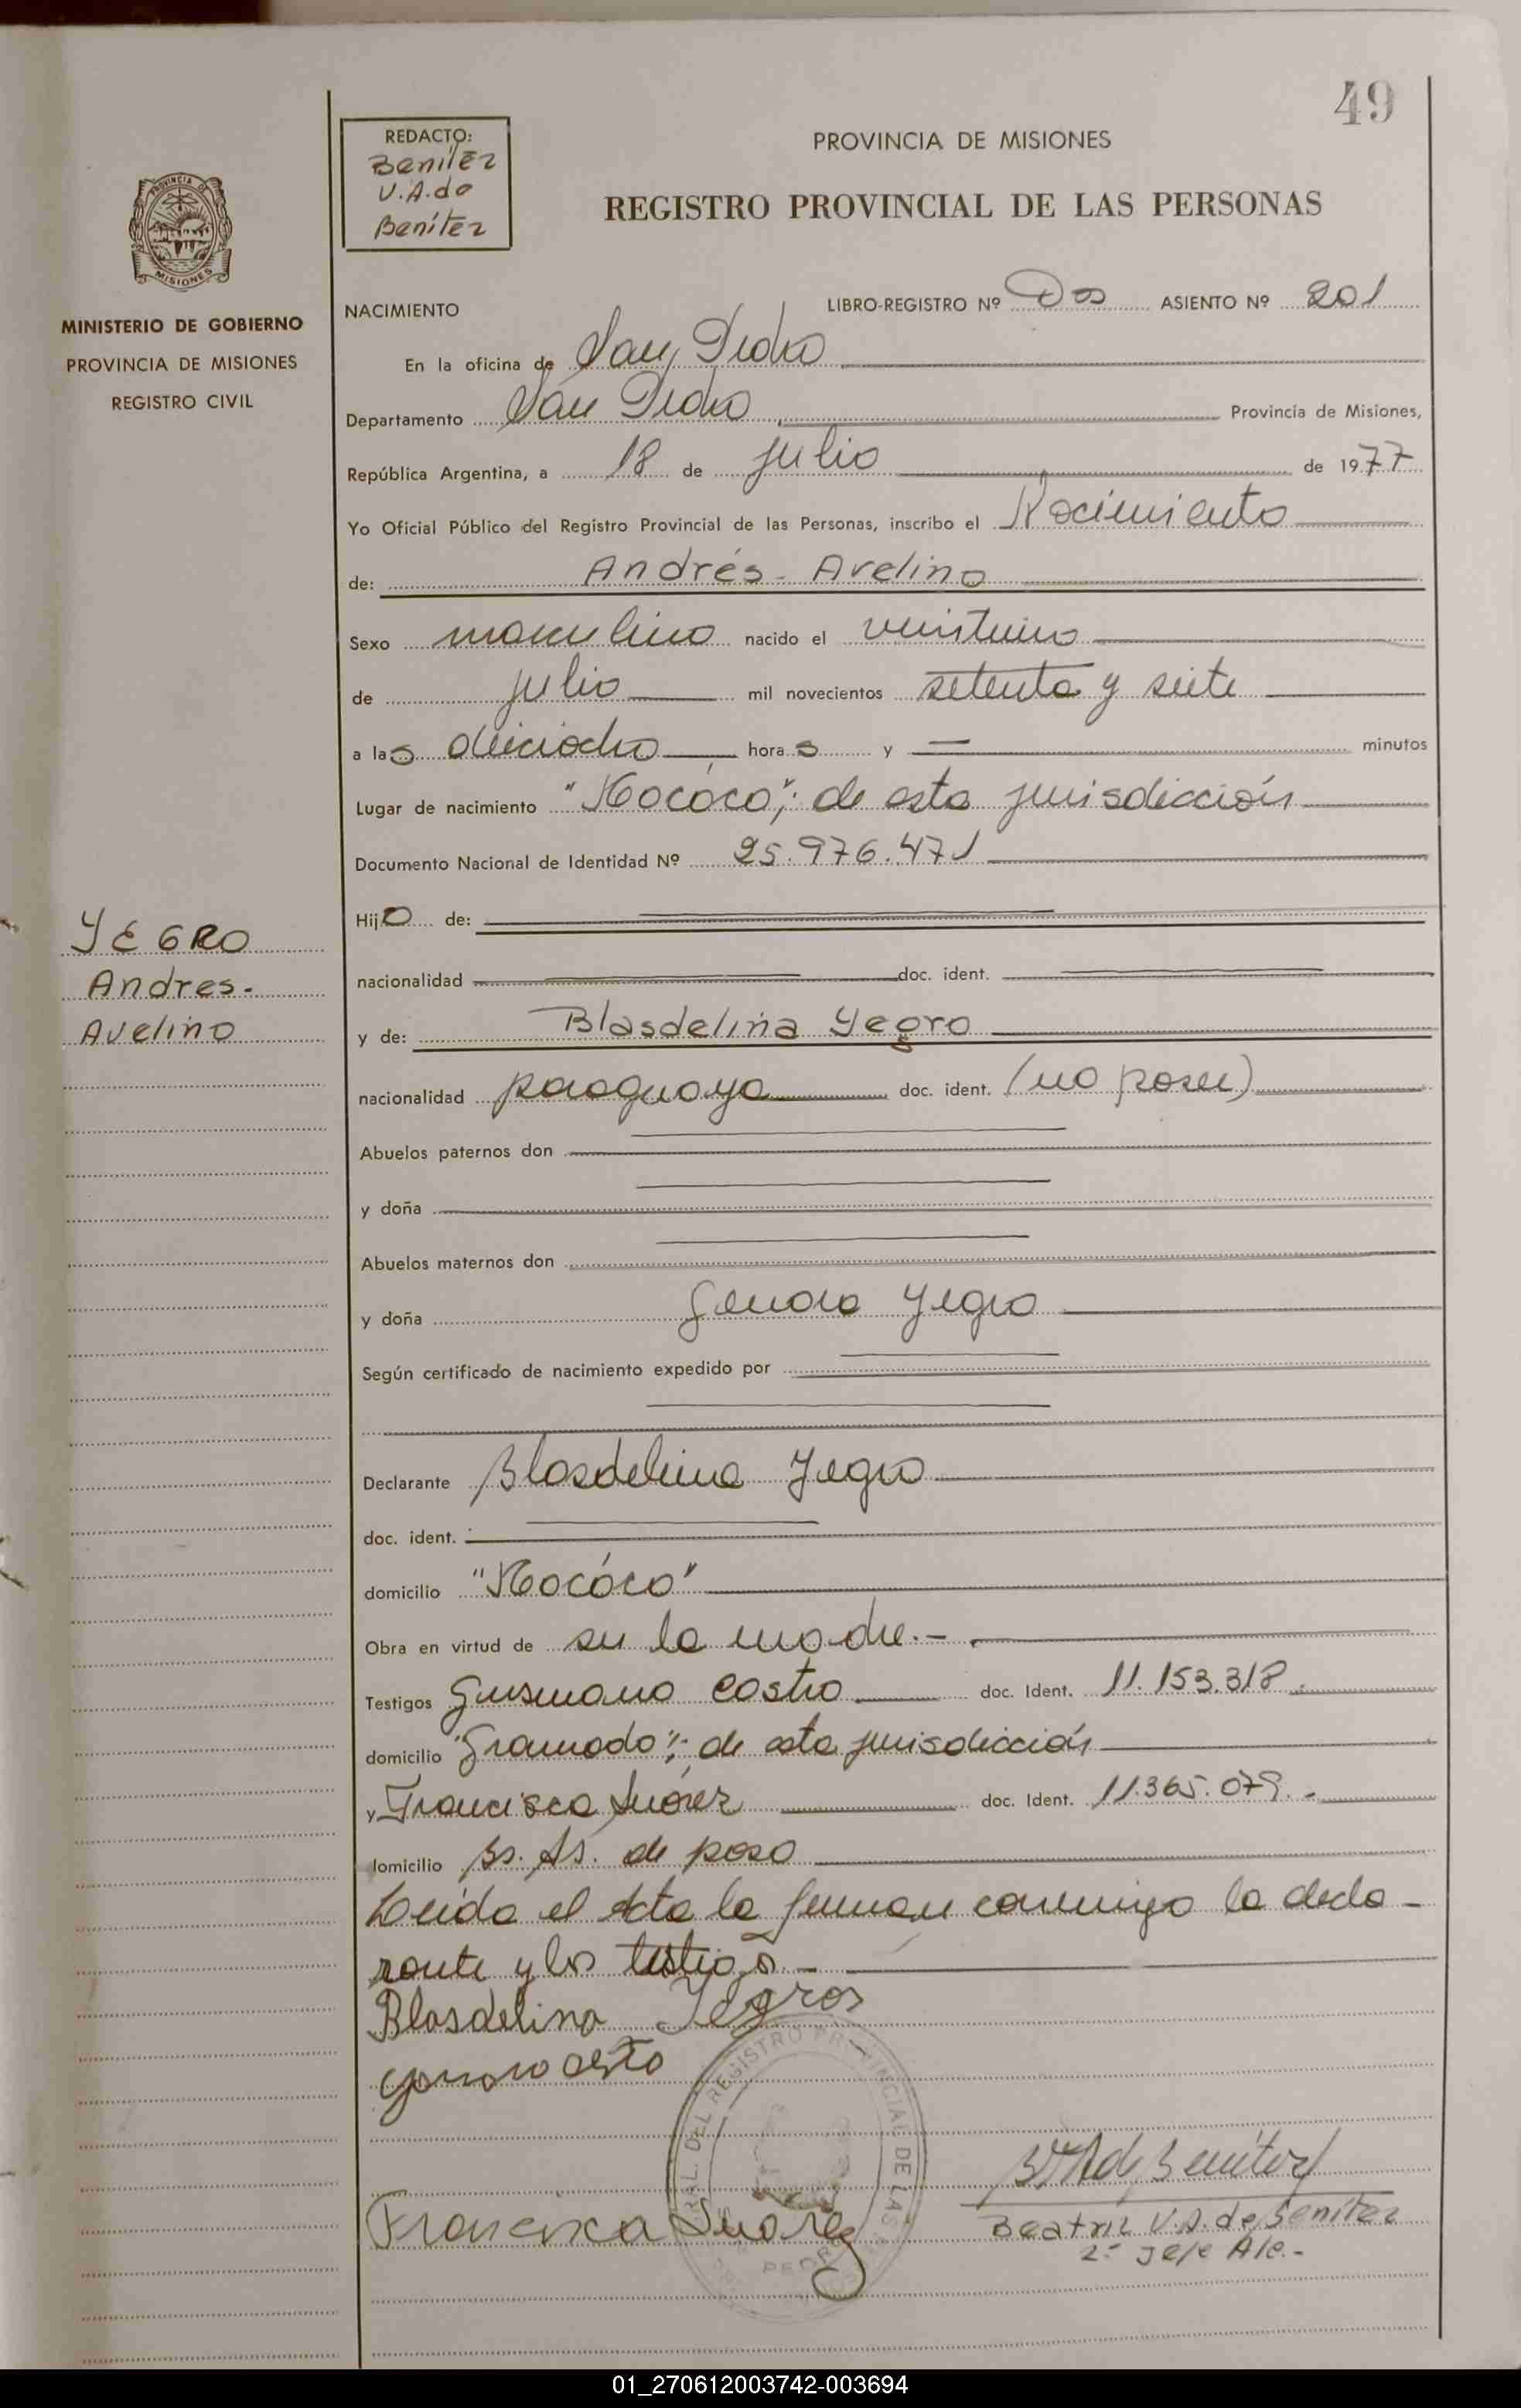 49
REDACTO:
Benítez
V.A.de
Benítez
PROVINCIA DE MISIONES
REGISTRO PROVINCIAL DE LAS PERSONAS
PROVINCIA DE MISIONES
MINISTERIO DE GOBIERNO
PROVINCIA DE MISIONES
REGISTRO CIVIL
NACIMIENTO LIBRO-REGISTRO Nº Dos ASIENTO Nº 201
En la oficina de San Pedro
Departamento San Pedro Provincia de Misiones,
República Argentina, a 18 de julio de 1977
Yo Oficial Público del Registro Provincial de las Personas, inscribo el Nacimiento
de: Andrés - Avelino
Sexo masculino nacido el
de julio mil novecientos setenta y siete
a las dieciocho horas y — minutos
Lugar de nacimiento "Kococo"; de esta jurisdicción
Documento Nacional de Identidad Nº 25.976.471
YEGRO
Andres-
Avelino
Hijo de:
nacionalidad doc. ident.
y de: Blasdelina Yegro
nacionalidad paraguaya doc. ident. (no posee)
Abuelos paternos don
y doña
Abuelos maternos don
y doña Yegro
Según certificado de nacimiento expedido por
Declarante Blasdelina Yegro
doc. ident.
domicilio "Kococo"
Obra en virtud de ser la madre.-
Testigos Castro doc. Ident. 11.153.318.
domicilio "Gramado"; de esta jurisdicción
y Francisca Suárez doc. Ident. 11.365.079.-
domicilio Bs. As. de paso
Leída el Acta la firman conmigo la decla-
rante y los testigos.-
Blasdelina Yegros
Francisca Suarez
Beatriz V.A. de Benítez
2º Jefe
01_270612003742-003694